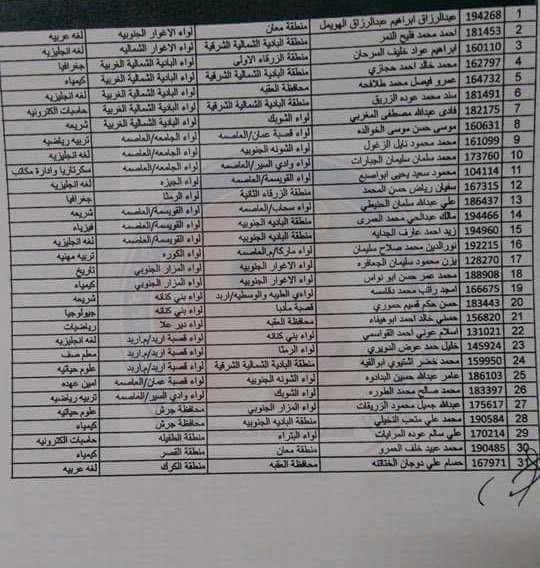 1 194268 عبدالرزاق ابراهيم عبدالرزاق الهويمل منطقة معان لواء الاغوار الجنوبيه لغه عربيه
2 181453 احمد محمد فليح النمر منطقة البادية الشمالية الشرقية لواء الاغوار الشماليه لغه انجليزيه
3 160110 ابراهيم عواد خليف السرحان منطقة الزرقاء الاولى لواء البادية الشمالية الغربية جغرافيا
4 162797 محمد خالد احمد حجازي منطقة البادية الشمالية الشرقية لواء البادية الشمالية الغربية كيمياء
5 164732 عمرو فيصل محمد طلافحه محافظة العقبه لواء البادية الشمالية الغربية لغه انجليزيه
6 181491 سند محمد عوده الزريق منطقة البادية الشمالية الشرقية لواء البادية الشمالية الغربية حاسبات الكترونيه
7 182175 فادى عبدالله مصطفى المغربي لواء الشوبك لواء البادية الشمالية الغربية شريعه
8 160631 موسى حسن موسى الخوالده لواء قصبة عمان/العاصمه لواء الجامعه/العاصمه تربيه رياضيه
9 161099 محمد محمود نايل الزغول لواء الشونه الجنوبيه لواء الجامعه/العاصمه لغه انجليزيه
10 173760 محمد سلمان سليمان الجبارات لواء وادي السير/العاصمه لواء الجامعه/العاصمه سكرتاريا وادارة مكاتب
11 104114 محمود سعيد يحيى ابواصبع لواء القويسمة/العاصمه لواء الجيزه لغه انجليزيه
12 167315 سفيان رياض حسن المحمد منطقة الزرقاء الثانية لواء الرمثا جغرافيا
13 186437 علي عبدالله سلمان الحنيطي لواء سحاب/العاصمه لواء القويسمة/العاصمه شريعه
14 194466 مالك عبدالحي محمد العمرى منطقة البادية الجنوبيه لواء القويسمة/العاصمه فيزياء
15 194960 زيد احمد عارف منطقة البادية الجنوبيه لواء القويسمة/العاصمه لغه انجليزيه
16 192215 نورالدين محمد صلاح سليمان لواء ماركا/م.العاصمه لواء الكوره تربيه مهنيه
17 128270 يزن محمود سليمان الجعافره لواء الاغوار الجنوبيه لواء المزار الجنوبي تاريخ
18 188908 محمد عمر حسن ابو نواس لواء الاغوار الجنوبيه لواء المزار الجنوبي كيمياء
19 166675 امجد راتب محمد لواءي الطيبه والوسطيه/اربد لواء بني كنانه شريعه
20 183443 حسن حكم قسيم حموري قصبة مأدبا لواء بني كنانه جيولوجيا
21 156820 حسني خالد احمد ابوهيفاء محافظة العقبه لواء دير علا رياضيات
22 131021 اسلام عوني احمد القواسمي لواء بني كنانه لواء قصبة اربد/م.اربد لغه انجليزيه
23 145924 خليل حمد عوض النويري لواء الرمثا لواء قصبة اربد/م.اربد معلم صف
24 159950 محمد خضر اشتيوي ابوالفيه منطقة البادية الشمالية الشرقية لواء قصبة اربد/م.اربد علوم حياتيه
25 186103 عامر عبدالله حسين لواء الشونه الجنوبيه لواء قصبة عمان/العاصمه امين عهده
26 183397 محمد صالح محمد الطوره لواء الشوبك لواء وادي السير/العاصمه تربيه رياضيه
27 175617 عبدالله جميل محمود الزريقات لواء المزار الجنوبي محافظة جرش علوم حياتيه
28 190584 محمد علي متعب منطقة البادية الجنوبيه محافظة جرش كيمياء
29 170214 علي سالم عوده المرايات لواء البتراء منطقة الطفيله حاسبات الكترونيه
30 190485 محمد عبيد خلف العمرو منطقة معان منطقة القصر كيمياء
31 167971 حسام علي دوجان الختاتنه محافظة العقبه منطقة الكرك لغه عربيه